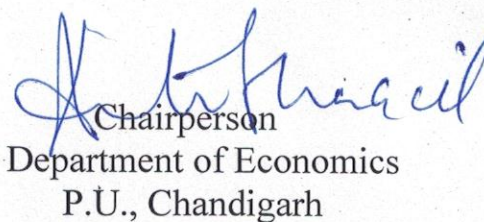 Chairperson
Department of Economics
P.U., Chandigarh